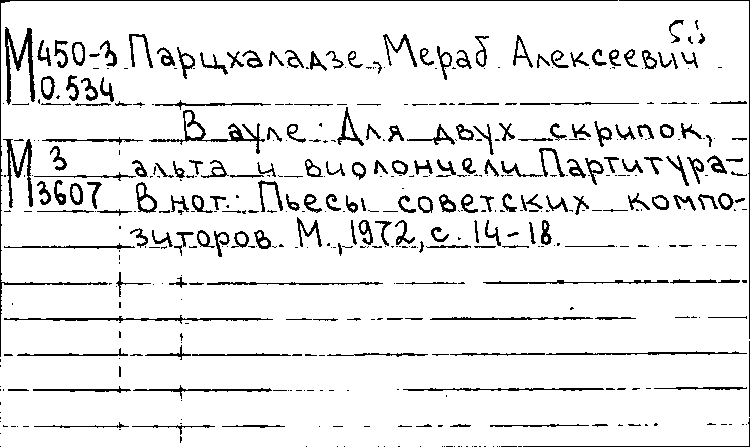 М 450-3 Парцхаладзе, Мераб Алексеевич
0.534
В ауле: Для двух скрипок,
М 3 альта и виолончели. Партитура-
3607 В нот.: Пьесы советских компо-
зиторов. М., 1972, с. 14-18.